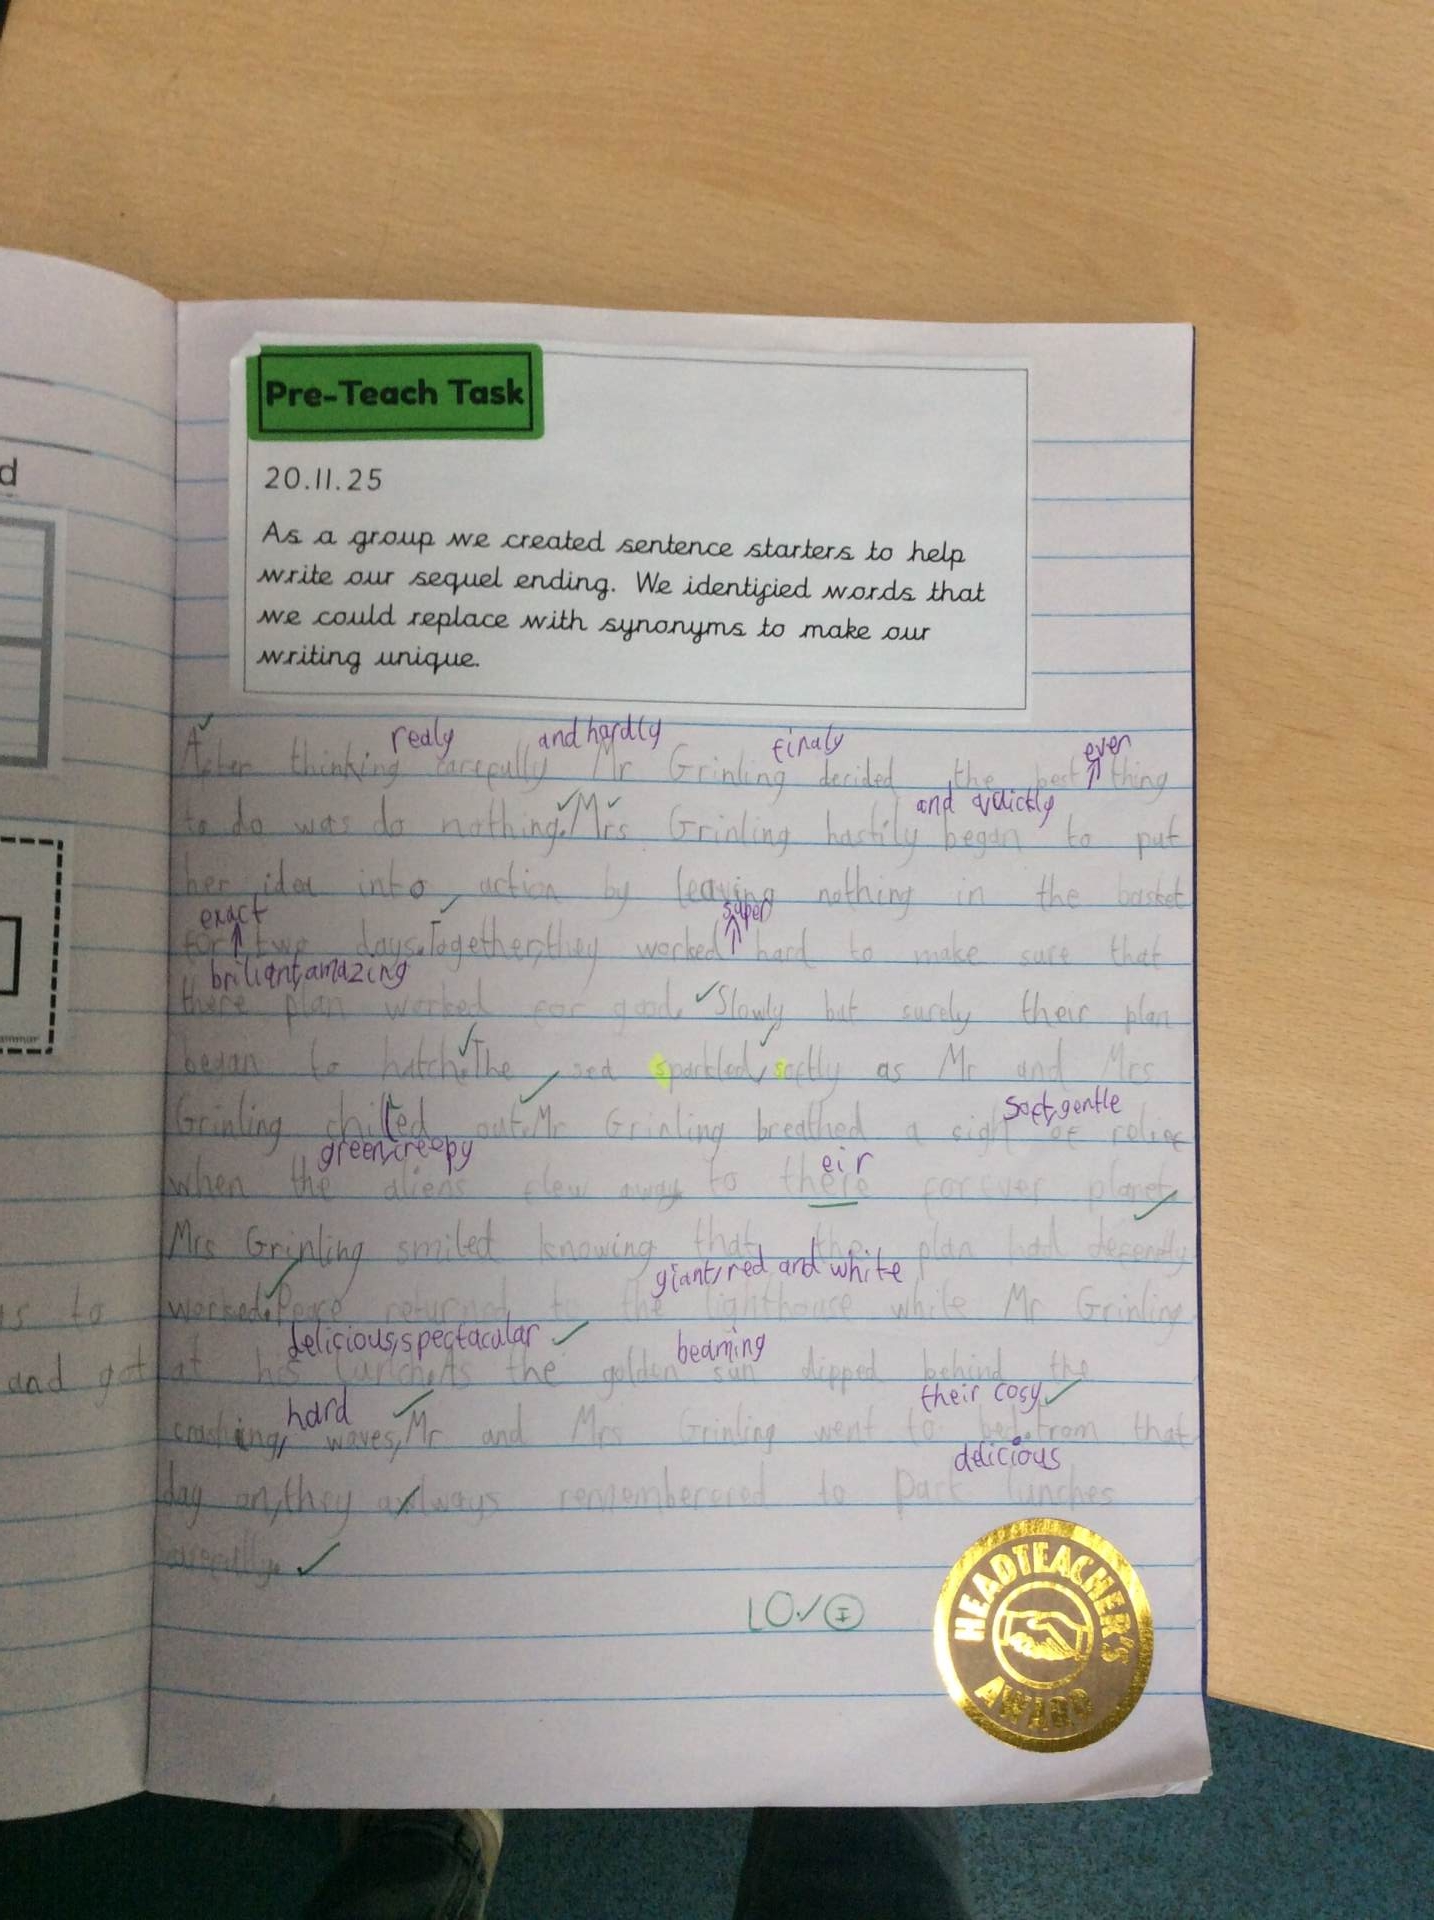 d
Pre-Teach Task
20.11.25
As a group we created sentence starters to help
write our sequel ending. We identified words that
we could replace with synonyms to make our
writing unique.
realy and hardly finaly ever
After thinking carefully Mr Grinling decided the best thing
and quickly
to do was do nothing. Mrs Grinling hastily began to put
her idea into action by leaving nothing in the basket
exact super
for two days. Together, they worked hard to make sure that
briliant, amazing
there plan worked for good. Slowly but surely their plan
began to hatch. The sea sparkled, softly as Mr and Mrs
soft, gentle
Grinling chilled out. Mr Grinling breathed a sigh of relief
green, creepy eir
when the aliens flew away to there forever planet.
Mrs Grinling smiled knowing that the plan had decently
giant, red and white
us to
worked. Peace returned to the lighthouse while Mr Grinling
delicious, spectacular beaming
and got
at his lunch. As the golden sun dipped behind the
hard their cosy
crashing, waves, Mr and Mrs Grinling went to bed. From that
delicious
day on, they always rememberered to Pack lunches
LO I
HEADTEACHER'S
AWARD